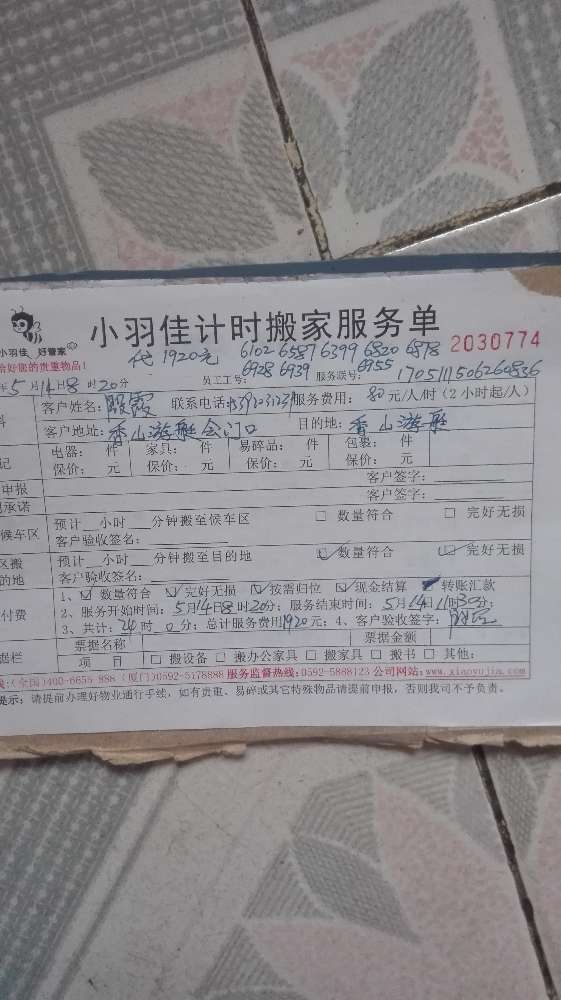 小羽佳 好管家
小羽佳计时搬家服务单
2030774
代 1920元 6102 6587 6399 6820 6878
6928 6939 6955
年5月14日8时20分 员工工号: 服务联号: 170511506260836
客户姓名: 霞 联系电话: 服务费用: 80元/人/时(2小时起/人)
客户地址: 香山游艇会门口 目的地: 香山游艇
电器: 件 家具: 件 易碎品: 件 包裹: 件
保价: 元 保价: 元 保价: 元 保价: 元
申报 客户签字:
承诺 客户签字:
候车区 预计 小时 分钟搬至候车区 □ 数量符合 □ 完好无损
客户验收签名:
区搬 预计 小时 分钟搬至目的地 ☑ 数量符合 ☑ 完好无损
的地 客户验收签名:
1、☑ 数量符合 ☑ 完好无损 ☑ 按需归位 ☑ 现金结算 ☑ 转账汇款
付费 2、服务开始时间: 5月14日8时20分; 服务结束时间: 5月14日11时30分;
3、共计: 24时 0分; 总计服务费用1920元; 4、客户验收签字:
据栏 票据名称 票据金额
项 目 □ 搬设备 □ 搬办公家具 □ 搬家具 □ 搬书 □ 其他:
线:(全国)400-6655-888 (厦门)0592-5178888 服务监督热线:0592-5888123 公司网站:www.xiaoyujia.com
提示: 请提前办理好物业通行手续, 如有贵重、易碎或其它特殊物品请提前申报, 否则我司不予负责。